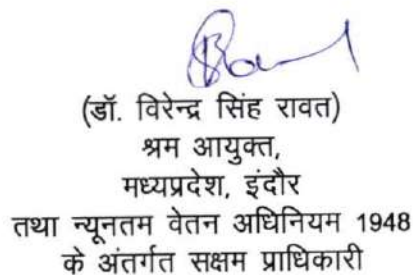 (डॉ. विरेन्द्र सिंह रावत)
श्रम आयुक्त,
मध्यप्रदेश, इंदौर
तथा न्यूनतम वेतन अधिनियम 1948
के अंतर्गत सक्षम प्राधिकारी